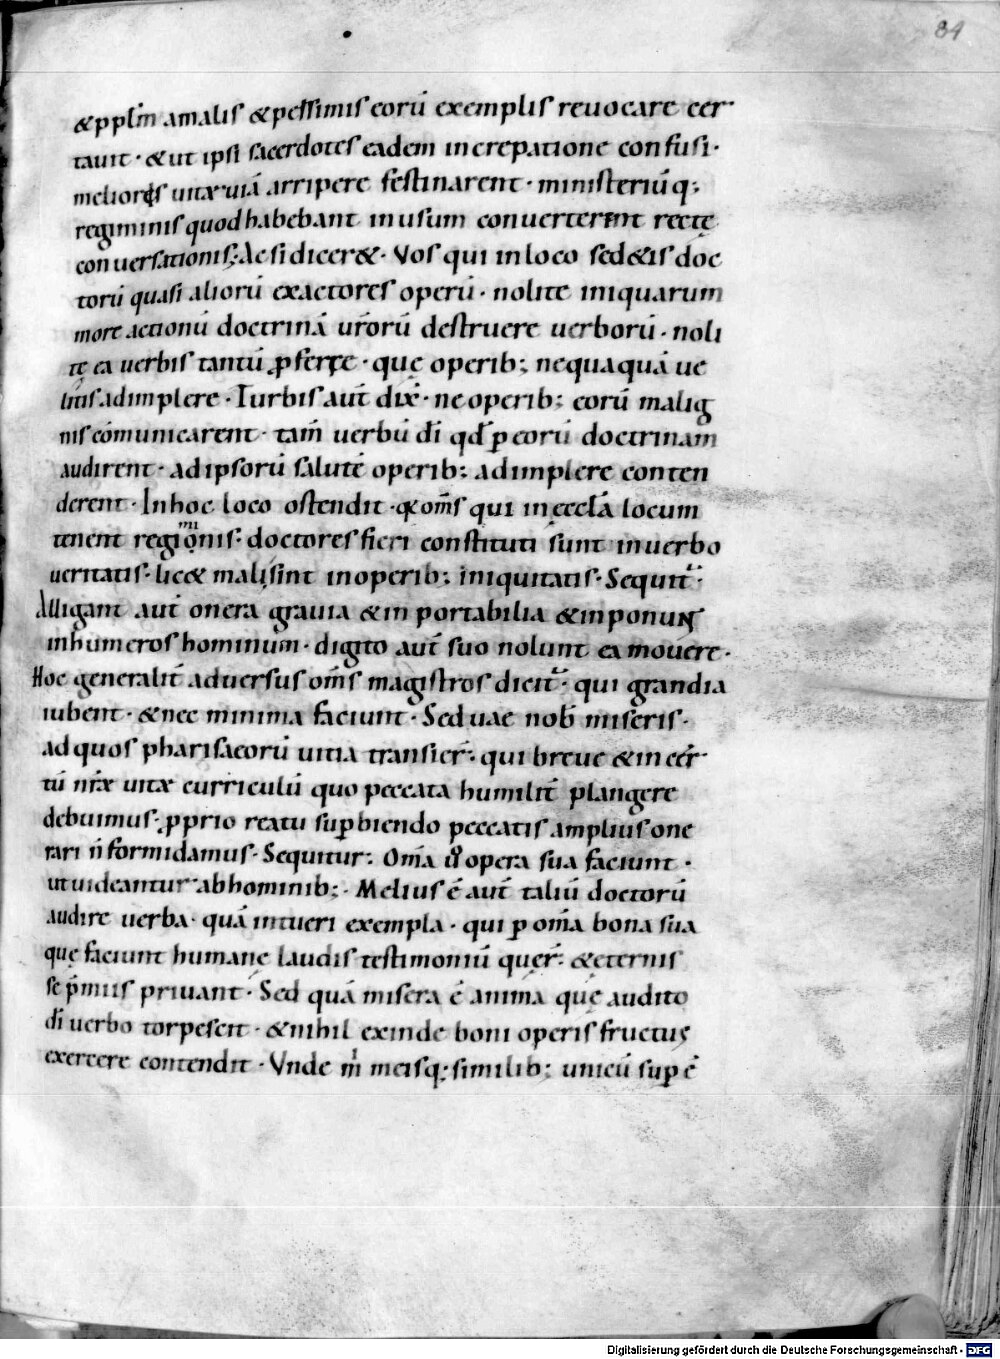 84
&pplm̄ amalis &pessimis eorū exemplis reuocare cer
tauit · &ut ipsi sacerdotes eadem increpatione confusi ·
meliorēs uitæ uiā arripere festinarent · ministeriūq;
regiminis quod habebant inusum conuerterent rectę
conuersationis; Acsidicer& · Vos qui inloco sed&is doc
torū quasi aliorū exactores operū · nolite iniquarum
more actionū doctrinā ur̄orū destruere uerborū · noli
te ea uerbis tantū ꝓferre · quę operib; nequaquā ue
litis adimplere · Turbis aut̄ dix̄ · ne operib; eorū malig
nis cōmunicarent · tam̄ uerbū dī qd̄ ꝑ eorū doctrinam
audirent · ad ipsorū salutē operib; adimplere conten
derent · Inhoc loco ostendit · qꝫ om̄s qui inęccl̄a locum
tenent regiminis: doctores fieri constituti sunt inuerbo
ueritatis · lic& mali sint inoperib; iniquitatis · Sequit̄ ·
Alligant aut̄ onera grauia &in portabilia &inponunt
inhumeros hominum · digito aut̄ suo nolunt ea mouere ·
Hoc generalit̄ aduersus om̄s magistros dicit̄ · qui grandia
iubent · &nec minima faciunt · Sed uae nob̄ miseris ·
ad quos pharisaeorū uitia transier̄ · qui breue &incer
tū nr̄æ uitæ curriculū quo peccata humilit̄ plangere
debuimus; ꝓprio reatu suꝑbiendo peccatis amplius one
rari n̄ formidamus · Sequitur: Om̄a u̅o opera sua faciunt ·
ut uideantur abhominib; · Melius ē aut̄ taliū doctorū
audire uerba · quā intueri exempla · qui ꝑ om̄a bona sua
quę faciunt humanę laudis testimoniū quęr̄ · &eternis
se p̄miis priuant · Sed quā misera ē anima quę audito
dī uerbo torpescit · &nihil exinde boni operis fructus
exercere contendit · Vnde m̄ meisq; similib; unicū suꝑ ē
Digitalisierung gefördert durch die Deutsche Forschungsgemeinschaft - DFG